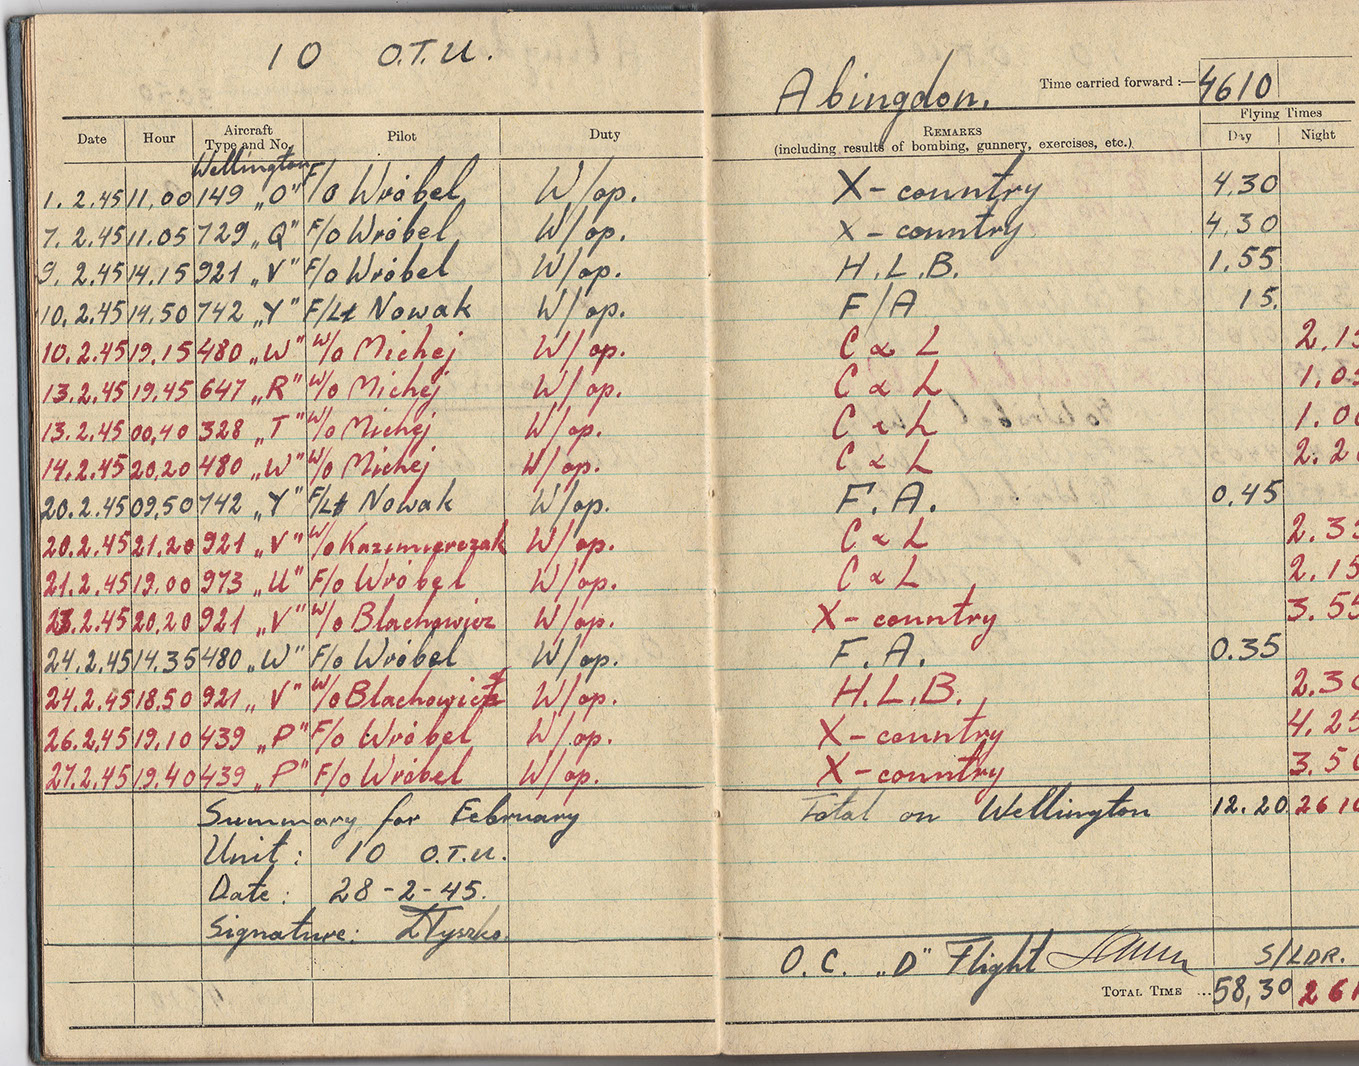 10 O.T.U.
Abingdon. Time carried forward :— 4610
Flying Times
Date Hour Aircraft Type and No. Pilot Duty REMARKS (including results of bombing, gunnery, exercises, etc.) Day Night
Wellington
1.2.45 11,00 149 „O" F/O Wróbel W/op. X-country 4,30
7.2.45 11.05 729 „Q" F/o Wróbel W/op. X-country 4,30
9.2.45 14.15 921 „V" F/o Wróbel W/op. H.L.B. 1,55
10.2.45 14,50 742 „Y" F/Lt Nowak W/op. F/A 15.
10.2.45 19,15 480 „W" W/o Michej W/op. C & L 2.15
13.2.45 19,45 647 „R" W/o Michej W/op. C & L 1.05
13.2.45 00,40 328 „T" W/o Michej W/op. C & L 1.00
14.2.45 20,20 480 „W" W/o Michej W/op. C & L 2.20
20.2.45 09,50 742 „Y" F/Lt Nowak W/op. F.A. 0.45
20.2.45 21,20 921 „V" W/o Kazimierczak W/op. C & L 2.35
21.2.45 19.00 973 „U" F/o Wróbel W/op. C & L 2.15
23.2.45 20,20 921 „V" W/o Blachowicz W/op. X-country 3.55
24.2.45 14.35 480 „W" F/o Wróbel W/op. F.A. 0.35
24.2.45 18.50 921 „V" W/o Blachowicz W/op. H.L.B. 2.30
26.2.45 19.10 439 „P" F/o Wróbel W/op. X-country 4.25
27.2.45 19.40 439 „P" F/o Wróbel W/op. X-country 3.50
Summary for February Total on Wellington 12.20 2610
Unit: 10 O.T.U.
Date: 28-2-45.
Signature: ZŁyszko.
O.C. „D" Flight S/LDR.
TOTAL TIME ... 58,30 261